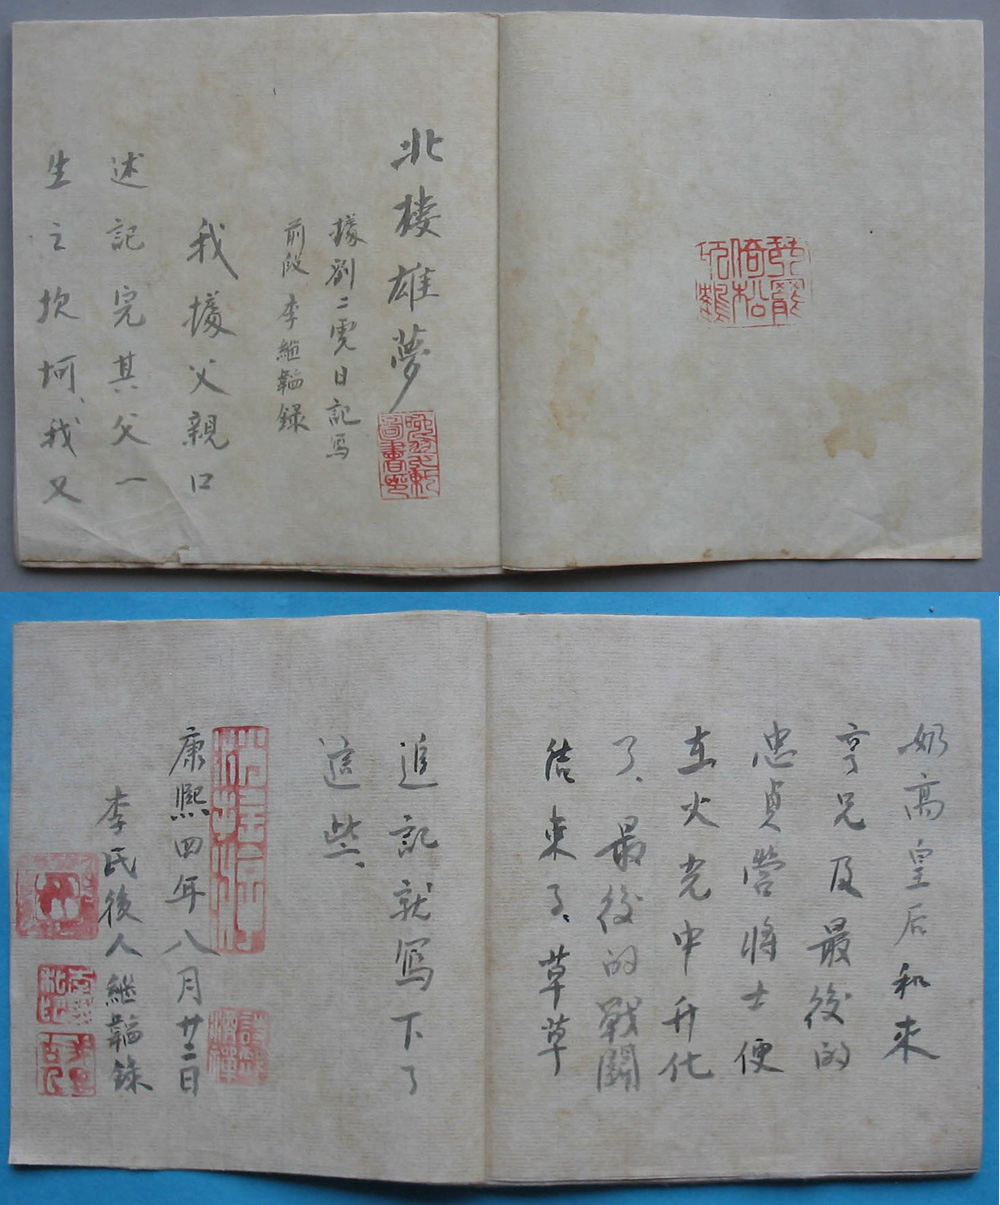 北楼雄夢
據劉二虎日記写
前段 李繼韜録
我據父親口
述記完其父一
生之坎坷、我又
奶高皇后和来
亨兄及最後的
忠貞營将士便
在火光中升化
了、最後的戰鬪
结束了、草草
追記就寫下了
這些、
康熙四年八月廿二日
李氏後人繼韜録
圖書
倚松
鶴